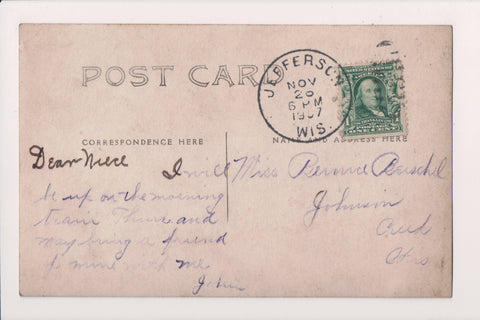 POST CARD
JEFFERSON
NOV
26
6 PM
1907
WIS.
CORRESPONDENCE HERE
NAME AND ADDRESS HERE
ONE CENT
Dear Niece I will
be up on the morning
train Thurs and
may bring a friend
of mine with me
John
Miss Bernice
Johnson
Creek
Wis